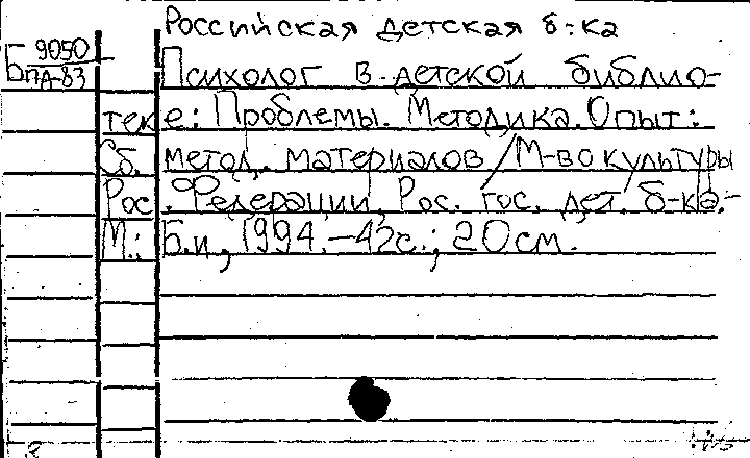 Российская детская б-ка
Б 9050
ПД-83
Психолог в детской библио-
теке: Проблемы. Методика. Опыт:
Сб. метод. материалов / М-во культуры
Рос. Федерации, Рос. гос. дет. б-ка.-
М.: Б.и, 1994.-42с.; 20 см.